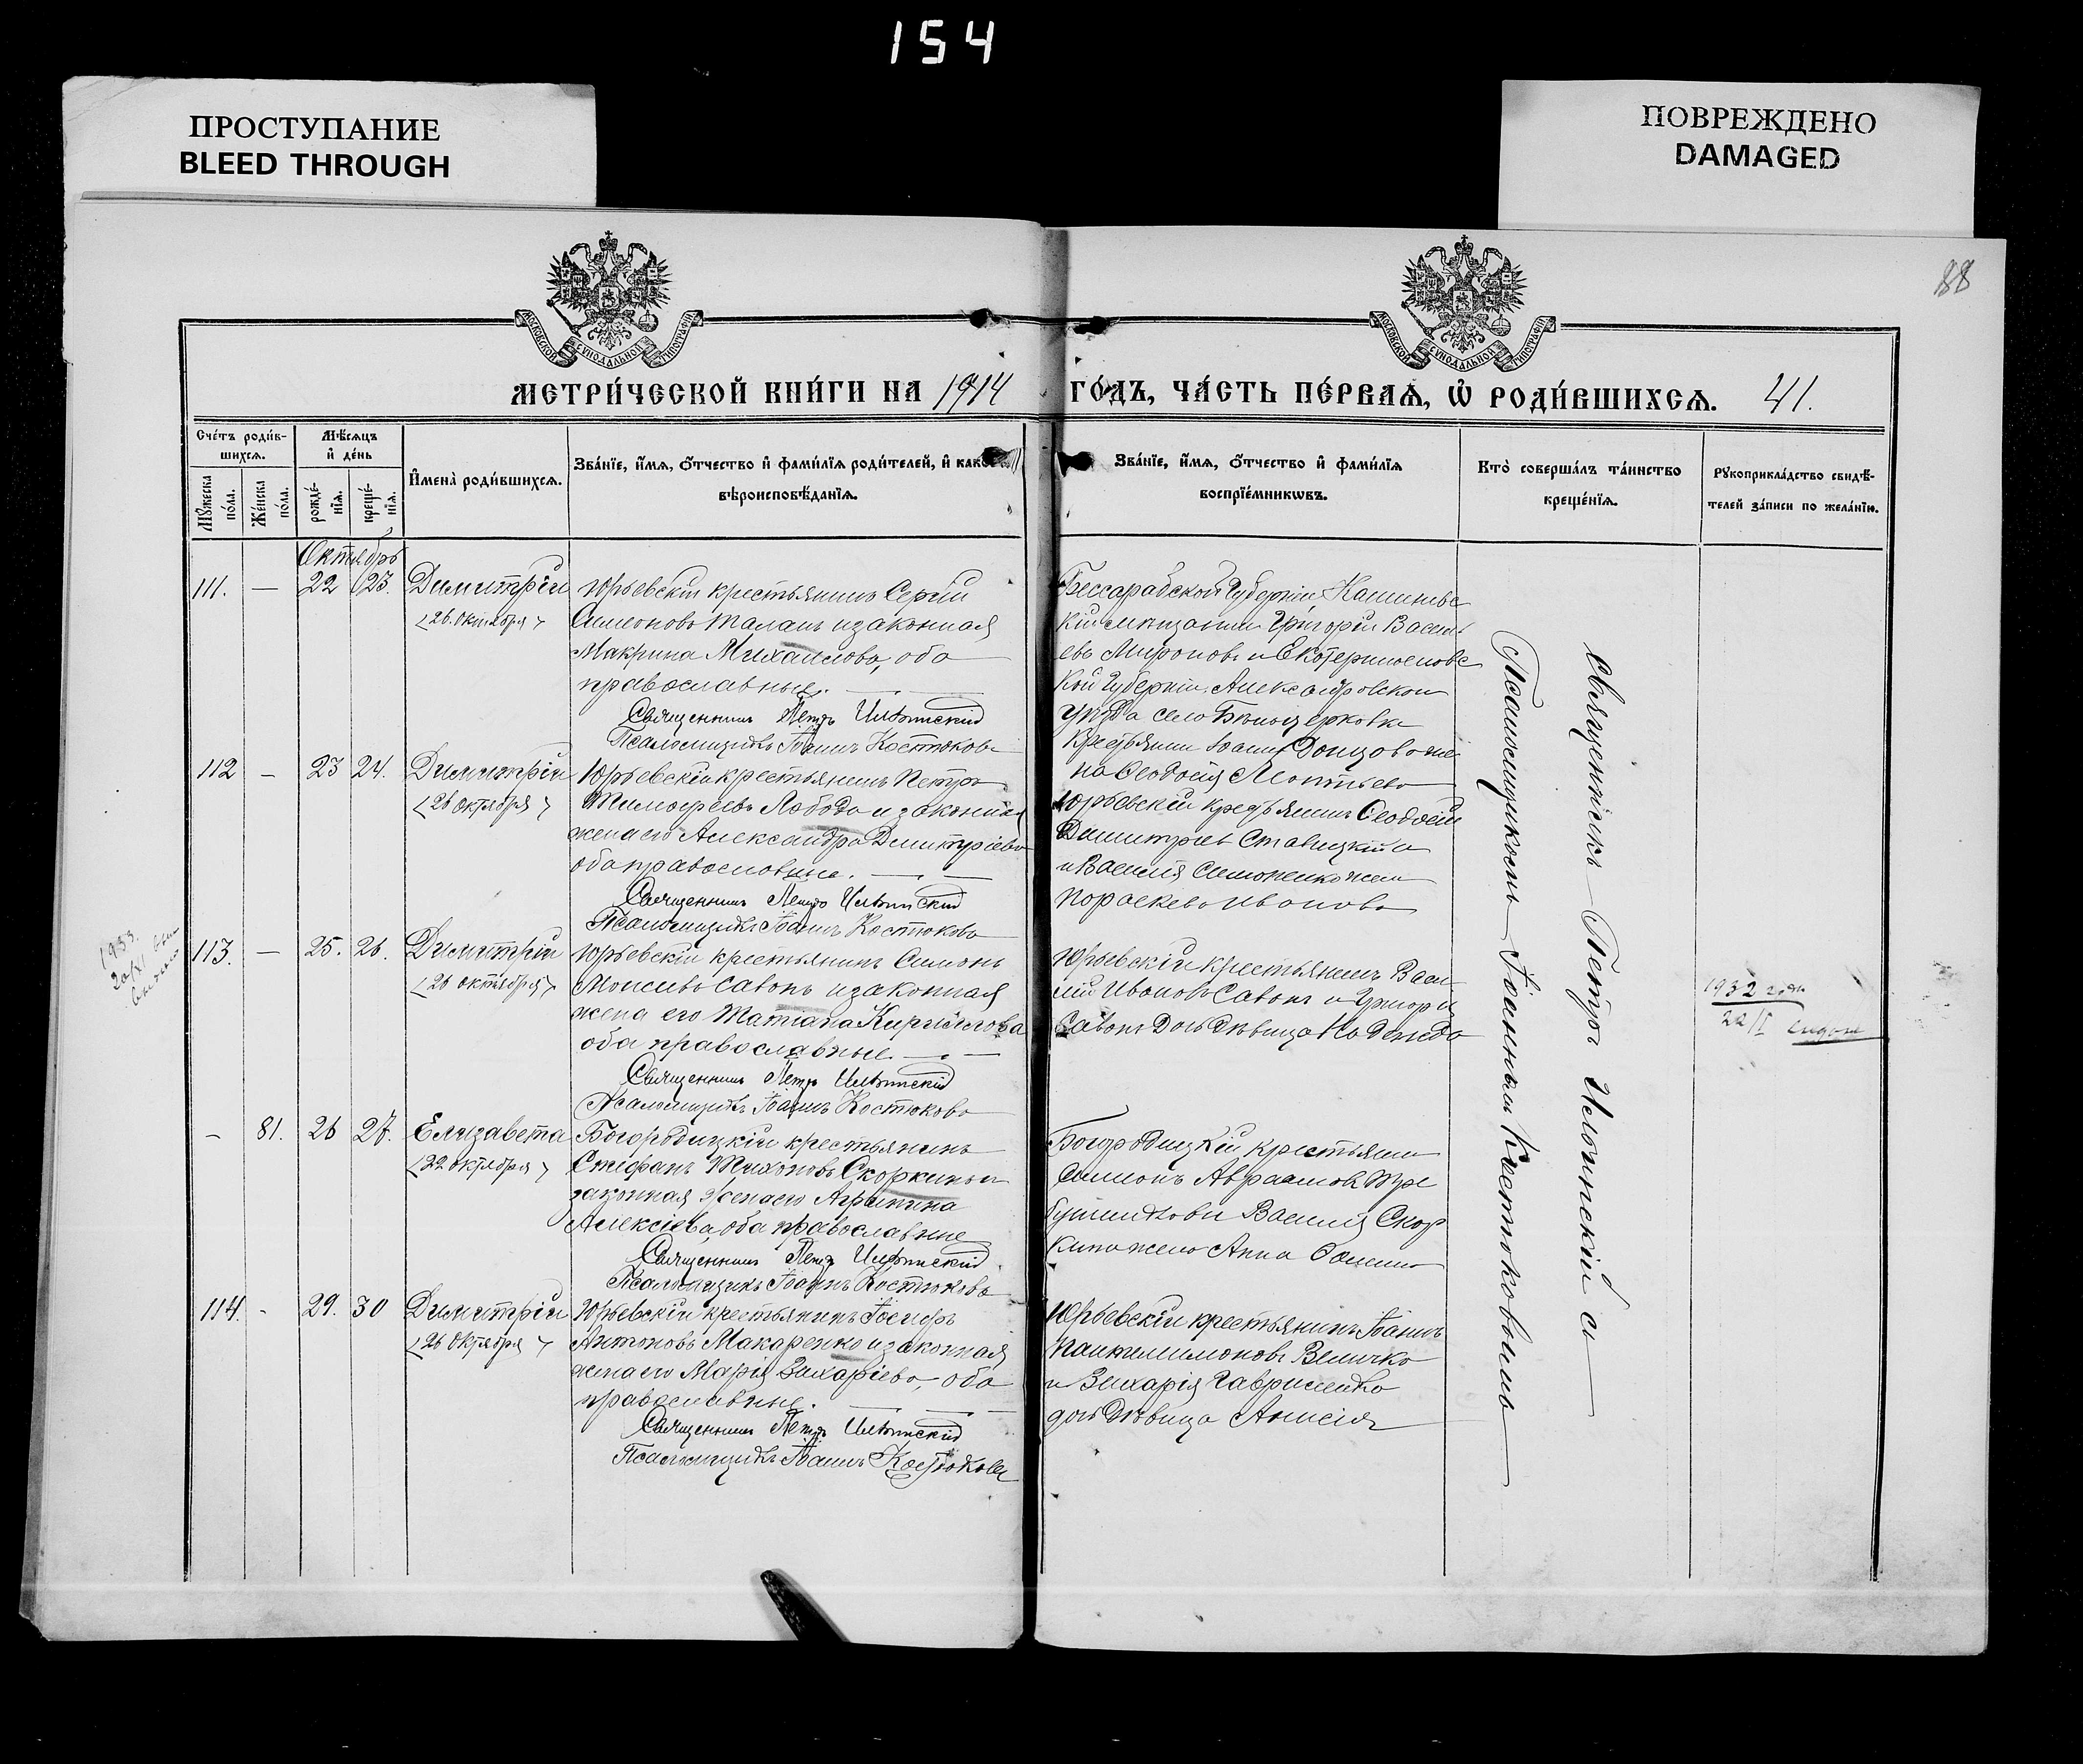 154
ПРОСТУПАНИЕ
BLEED THROUGH
ПОВРЕЖДЕНО
DAMAGED
88
МОСКОВСКОЙ СѴНОДАЛЬНОЙ ТИПОГРАФІИ
МОСКОВСКОЙ СѴНОДАЛЬНОЙ ТИПОГРАФІИ
МЕТРИ́ЧЕСКОЙ КНИ́ГИ НА 1914 ГО́ДЪ, ЧА́СТЬ ПЕ́РВАѦ, Ѡ҆ РОДИ́ВШИХСѦ. 41.
Сче́тъ роди́в-
шихсѧ.
Мѣ́сѧцъ
и҆ де́нь
Мꙋ́жеска
по́ла.
Же́нска
по́ла.
рожде́-
нїѧ.
креще́-
нїѧ.
И҆мена̀ роди́вшихсѧ.
Зва́нїе, и҆́мѧ, ѻ҆́тчество и҆ фами́лїѧ роди́телей, и҆ како́гѡ
вѣроисповѣ́данїѧ.
Зва́нїе, и҆́мѧ, ѻ҆́тчество и҆ фами́лїѧ
воспрїе́мникѡвъ.
Кто̀ соверша́лъ та́инство
креще́нїѧ.
Рꙋкоприкла́дство свидѣ́-
телей за́писи по жела́нїю.
Октябрь
111. — 22 23. Димитрій
<26. октября>
Юрьевскій крестьянинъ Сергій
Симеоновъ Талаш и законная
Макрина Михаилова, оба
православные.
Священникъ Петръ Илютинскій
Псаломщикъ Іоаннъ Костюковъ
Бессарабской Губерніи Кишинев
кій мѣщанинъ Григорій Василь
евъ Мироновъ и Екатеринославс
кой Губерніи, Александровскаго
уѣзда села Бѣлоцерковка
крестьянина Іоанна Донцова же
на Ѳеодосія Леонтьева
112 — 23 24. Димитрій
<26 октября>
Юрьевскій крестьянинъ Петръ
Тимофеевъ Лобода и законная
жена его Александра Димитріева
оба православные.
Священникъ Петръ Илютинскій
Псаломщикъ Іоаннъ Костюковъ
Юрьевскій крестьянинъ Ѳеодосій
Димитріевъ Ставицкій и
Василія Симоненко жена
Параскева Иванова
1933.
113. — 25. 26. Димитрій
<26 октября>
Юрьевскій крестьянинъ Симеонъ
Моисеевъ Савонъ и законная
жена его Татіана Кириллова
оба православные
Священникъ Петръ Илютинскій
Псаломщикъ Іоаннъ Костюковъ
Юрьевскій крестьянинъ Васи-
лій Ивановъ Савонъ и Григорія
Савона дочь дѣвица Надежда
1932 года
22/I
— 81. 26 27. Елизавета
<22 октября>
Богородицкій крестьянинъ
Стефанъ Тихоновъ Скоркинъ и
законная жена его Агрипина
Алексіева, оба православные
Священникъ Петръ Илютинскій
Псаломщикъ Іоаннъ Костюковъ
Богородицкій крестьянинъ
Симеонъ Авраамовъ
и Василія Скор
кина жена Анна
114. — 29. 30 Димитрій
<26 октября>
Юрьевскій крестьянинъ Іосифъ
Антоновъ Макаренко и законная
жена его Марія Захаріева, оба
православные.
Священникъ Петръ Илютинскій
Псаломщикъ Іоаннъ Костюковъ
Юрьевскій крестьянинъ Іоаннъ
Пантелимоновъ Величко
и Захарія Гавриленко
дочь дѣвица Анисія
Священникъ Петръ Илютинскій съ
Псаломщикомъ Іоанномъ Костюковымъ